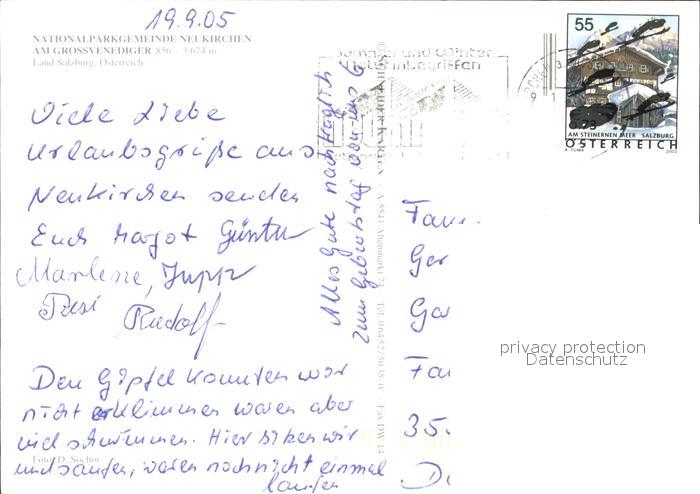 19.9.05
NATIONALPARKGEMEINDE NEUKIRCHEN
AM GROSSVENEDIGER 856 – 3.674 m
Land Salzburg, Österreich
Viele Liebe
Urlaubsgrüße aus
Neukirchen senden
Euch Margot Günter
Marlene, Jupp
Resi Rudolf
Den Gipfel konnten wir
nicht erklimmen waren aber
viel schwimmen. Hier sitzen wir
und saufen, waren noch nicht einmal
laufen
Foto: D. Sochor
Alles Gute nachträglich
zum Geburtstag von uns 6
SCHNEIDER-KARTEN A-5541 Altenmarkt
Sommer und Winter
55
AM STEINERNEN MEER SALZBURG
ÖSTERREICH
2002
Fam
Ger
Gar
Fa
35.
D
privacy protection
Datenschutz